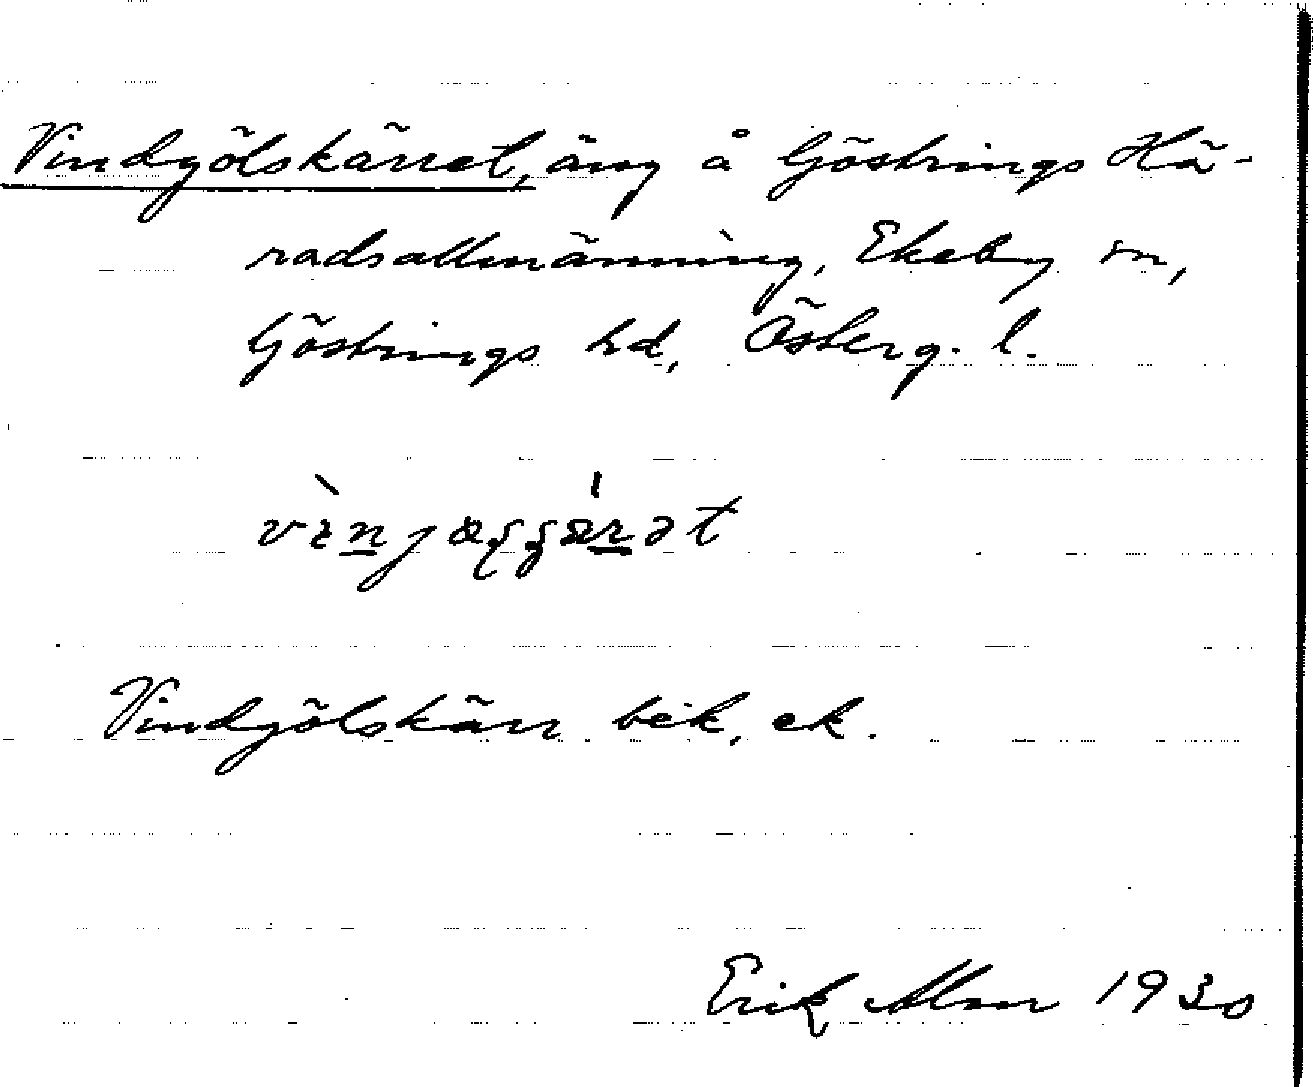 Vindgölskärret, äng å Göstrings Hä-
radsallmänning, Ekeby sn,
Göstrings hd, Österg. l.
Vindgölskärr bek, ek.
Erik Alm 1930